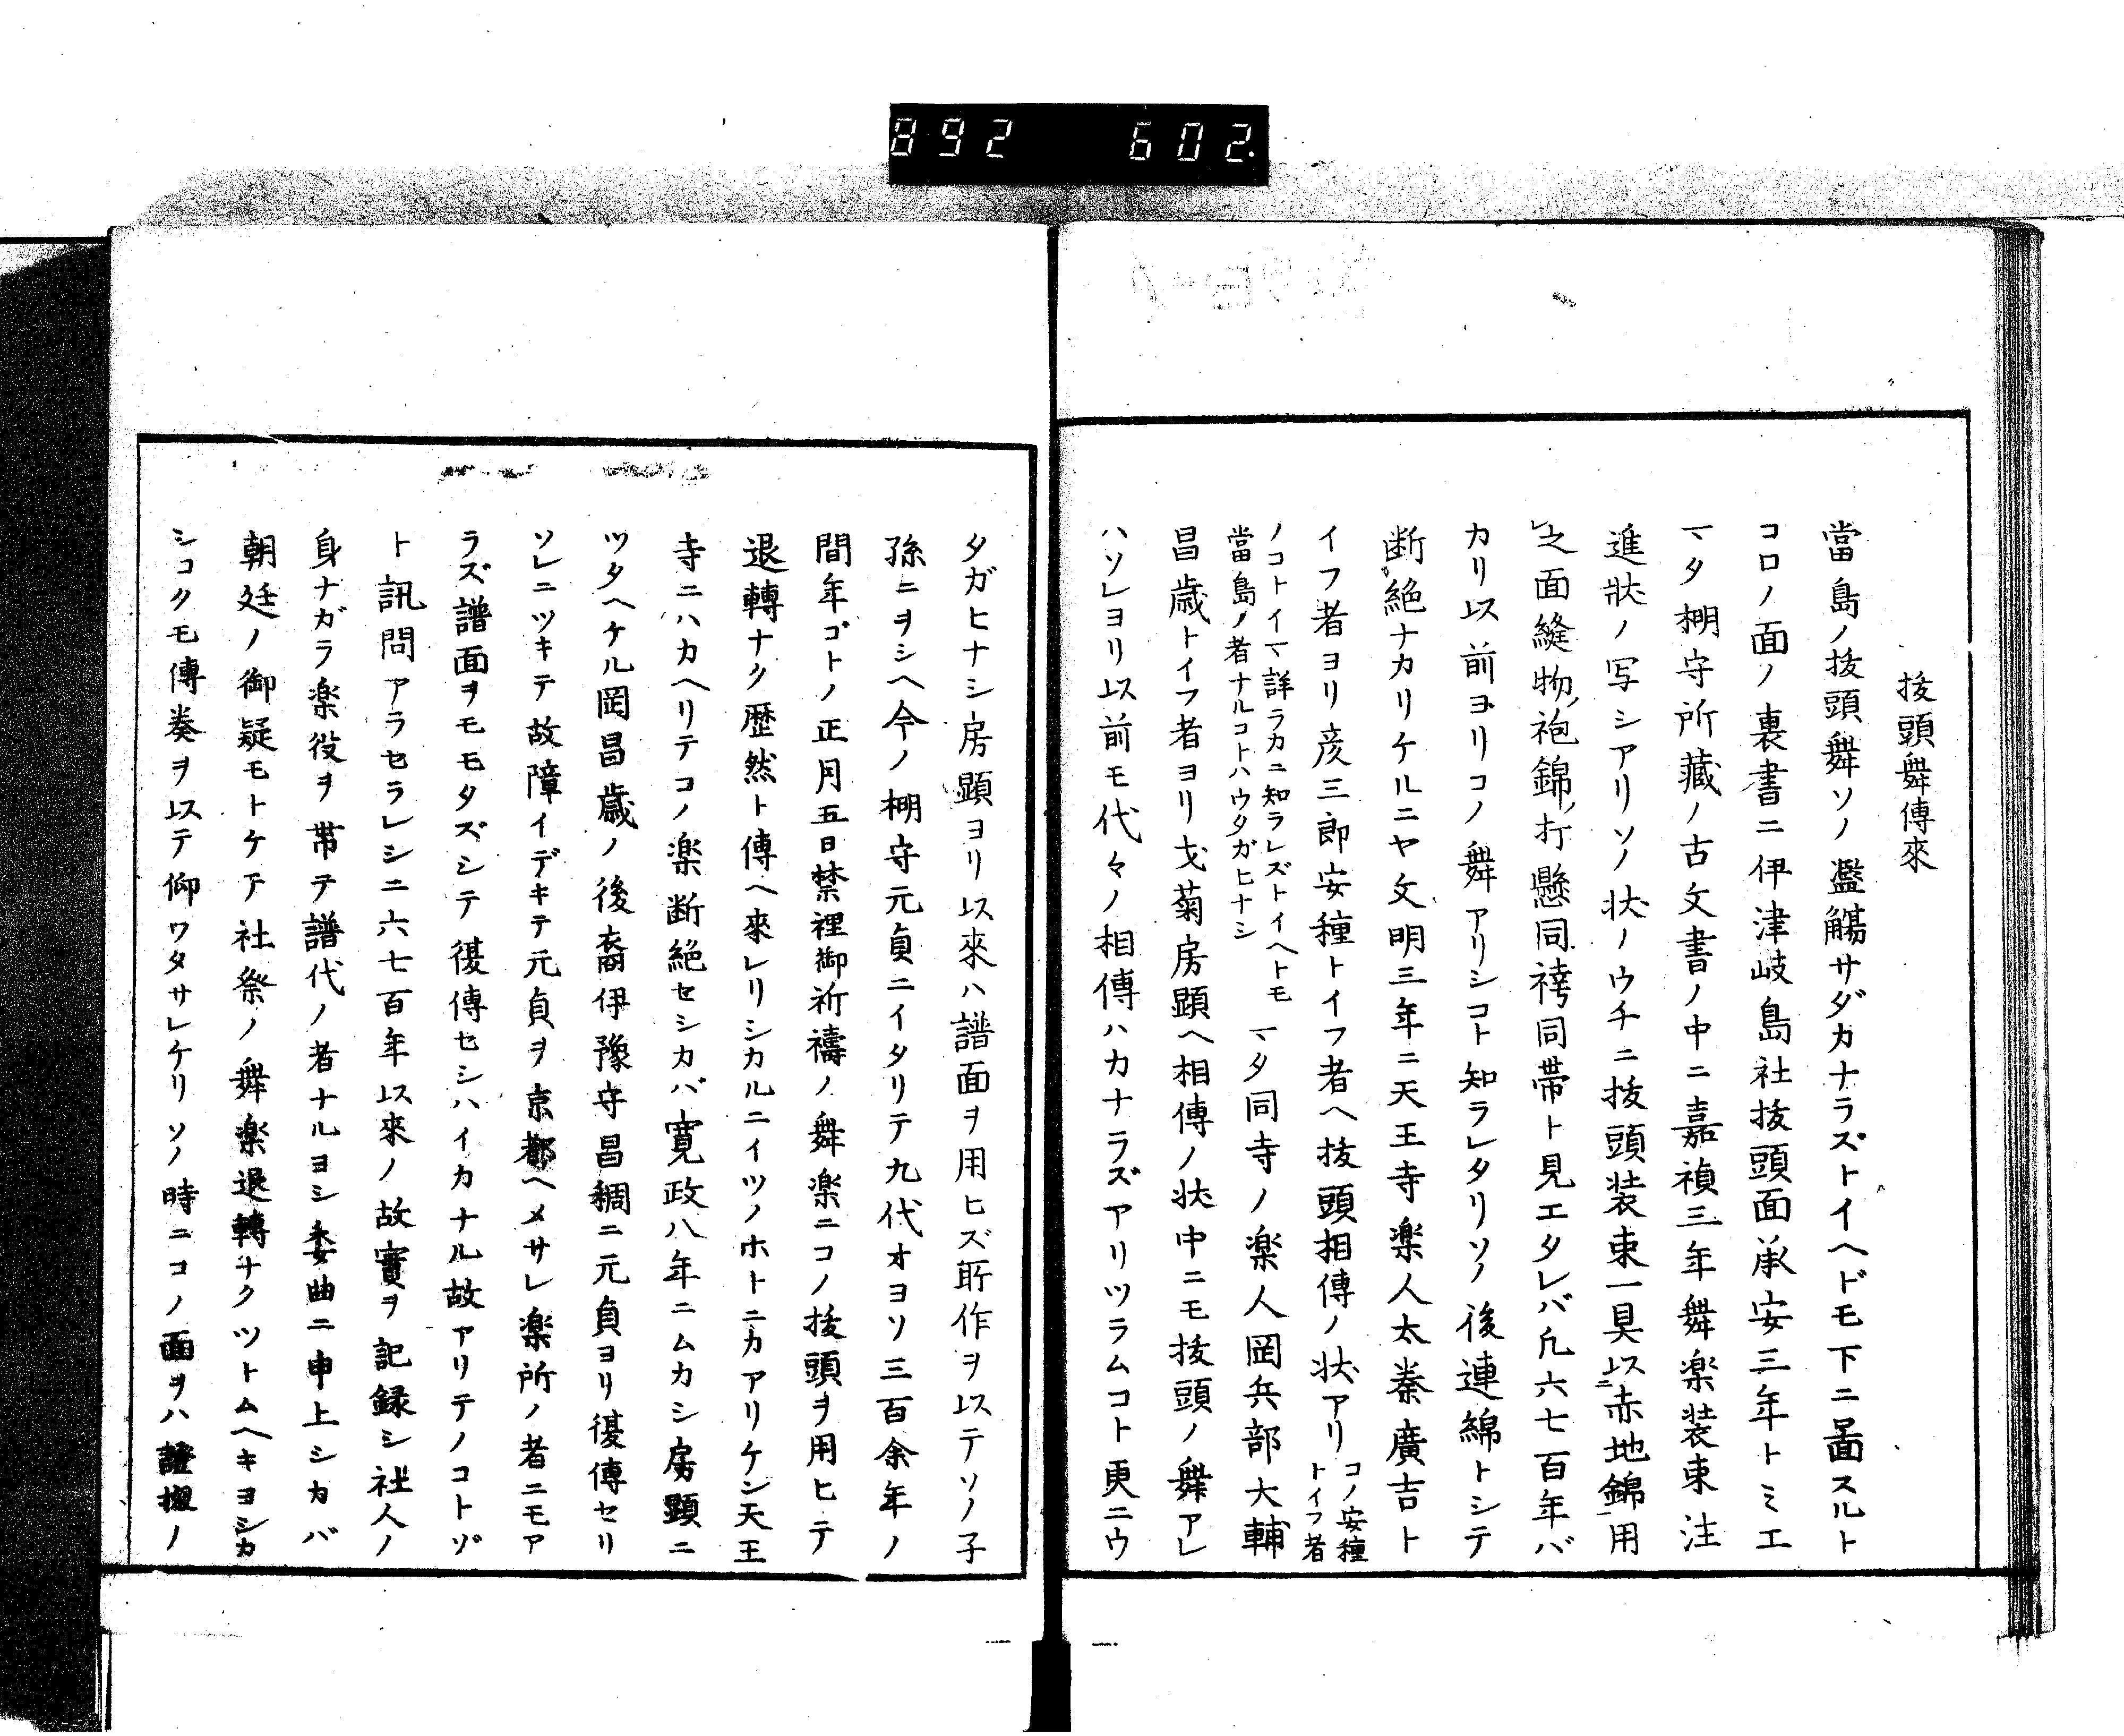 892 602.
抜頭舞傳來
當島ノ抜頭舞ソノ濫觴サダカナラズトイヘドモ下ニ啚スルト
コロノ面ノ裏書ニ伊津岐島社抜頭面承安三年トミエ
マタ棚守所藏ノ古文書ノ中ニ嘉禎三年舞楽装束注
進状ノ写シアリソノ状ノウチニ抜頭装束一具以赤地錦用
之面縫物袍錦打懸同袴同帯ト見エタレバ凡六七百年バ
カリ以前ヨリコノ舞アリシコト知ラレタリソノ後連綿トシテ
断絶ナカリケルニヤ文明三年ニ天王寺楽人太秦廣吉ト
イフ者ヨリ彦三郎安種トイフ者ヘ抜頭相傳ノ状アリ コノ安種
トイフ者
ノコトイマ詳ラカニ知ラレズトイヘトモ
當島ノ者ナルコトハウタガヒナシ
マタ同寺ノ楽人岡兵部大輔
昌歳トイフ者ヨリ戈菊房顕ヘ相傳ノ状中ニモ抜頭ノ舞アレ
ハソレヨリ以前モ代々ノ相傳ハカナラズアリツラムコト更ニウ
タガヒナシ房顕ヨリ以來ハ譜面ヲ用ヒズ所作ヲ以テソノ子
孫ニヲシヘ今ノ棚守元貞ニイタリテ九代オヨソ三百余年ノ
間年ゴトノ正月五日禁裡御祈禱ノ舞楽ニコノ抜頭ヲ用ヒテ
退轉ナク歴然ト傳ヘ來レリシカルニイツノホトニカアリケン天王
寺ニハカヘリテコノ楽断絶セシカバ寛政八年ニムカシ房顕ニ
ツタヘケル岡昌歳ノ後裔伊豫守昌稠ニ元貞ヨリ復傳セリ
ソレニツキテ故障イデキテ元貞ヲ京都ヘメサレ楽所ノ者ニモア
ラズ譜面ヲモモタズシテ復傳セシハイカナル故アリテノコトゾ
ト訊問アラセラレシニ六七百年以來ノ故實ヲ記録シ社人ノ
身ナガラ楽役ヲ帯テ譜代ノ者ナルヨシ委曲ニ申上シカバ
朝廷ノ御疑モトケテ社祭ノ舞楽退轉ナクツトムヘキヨシカ
シコクモ傳奏ヲ以テ仰ワタサレケリソノ時ニコノ面ヲハ證拠ノ